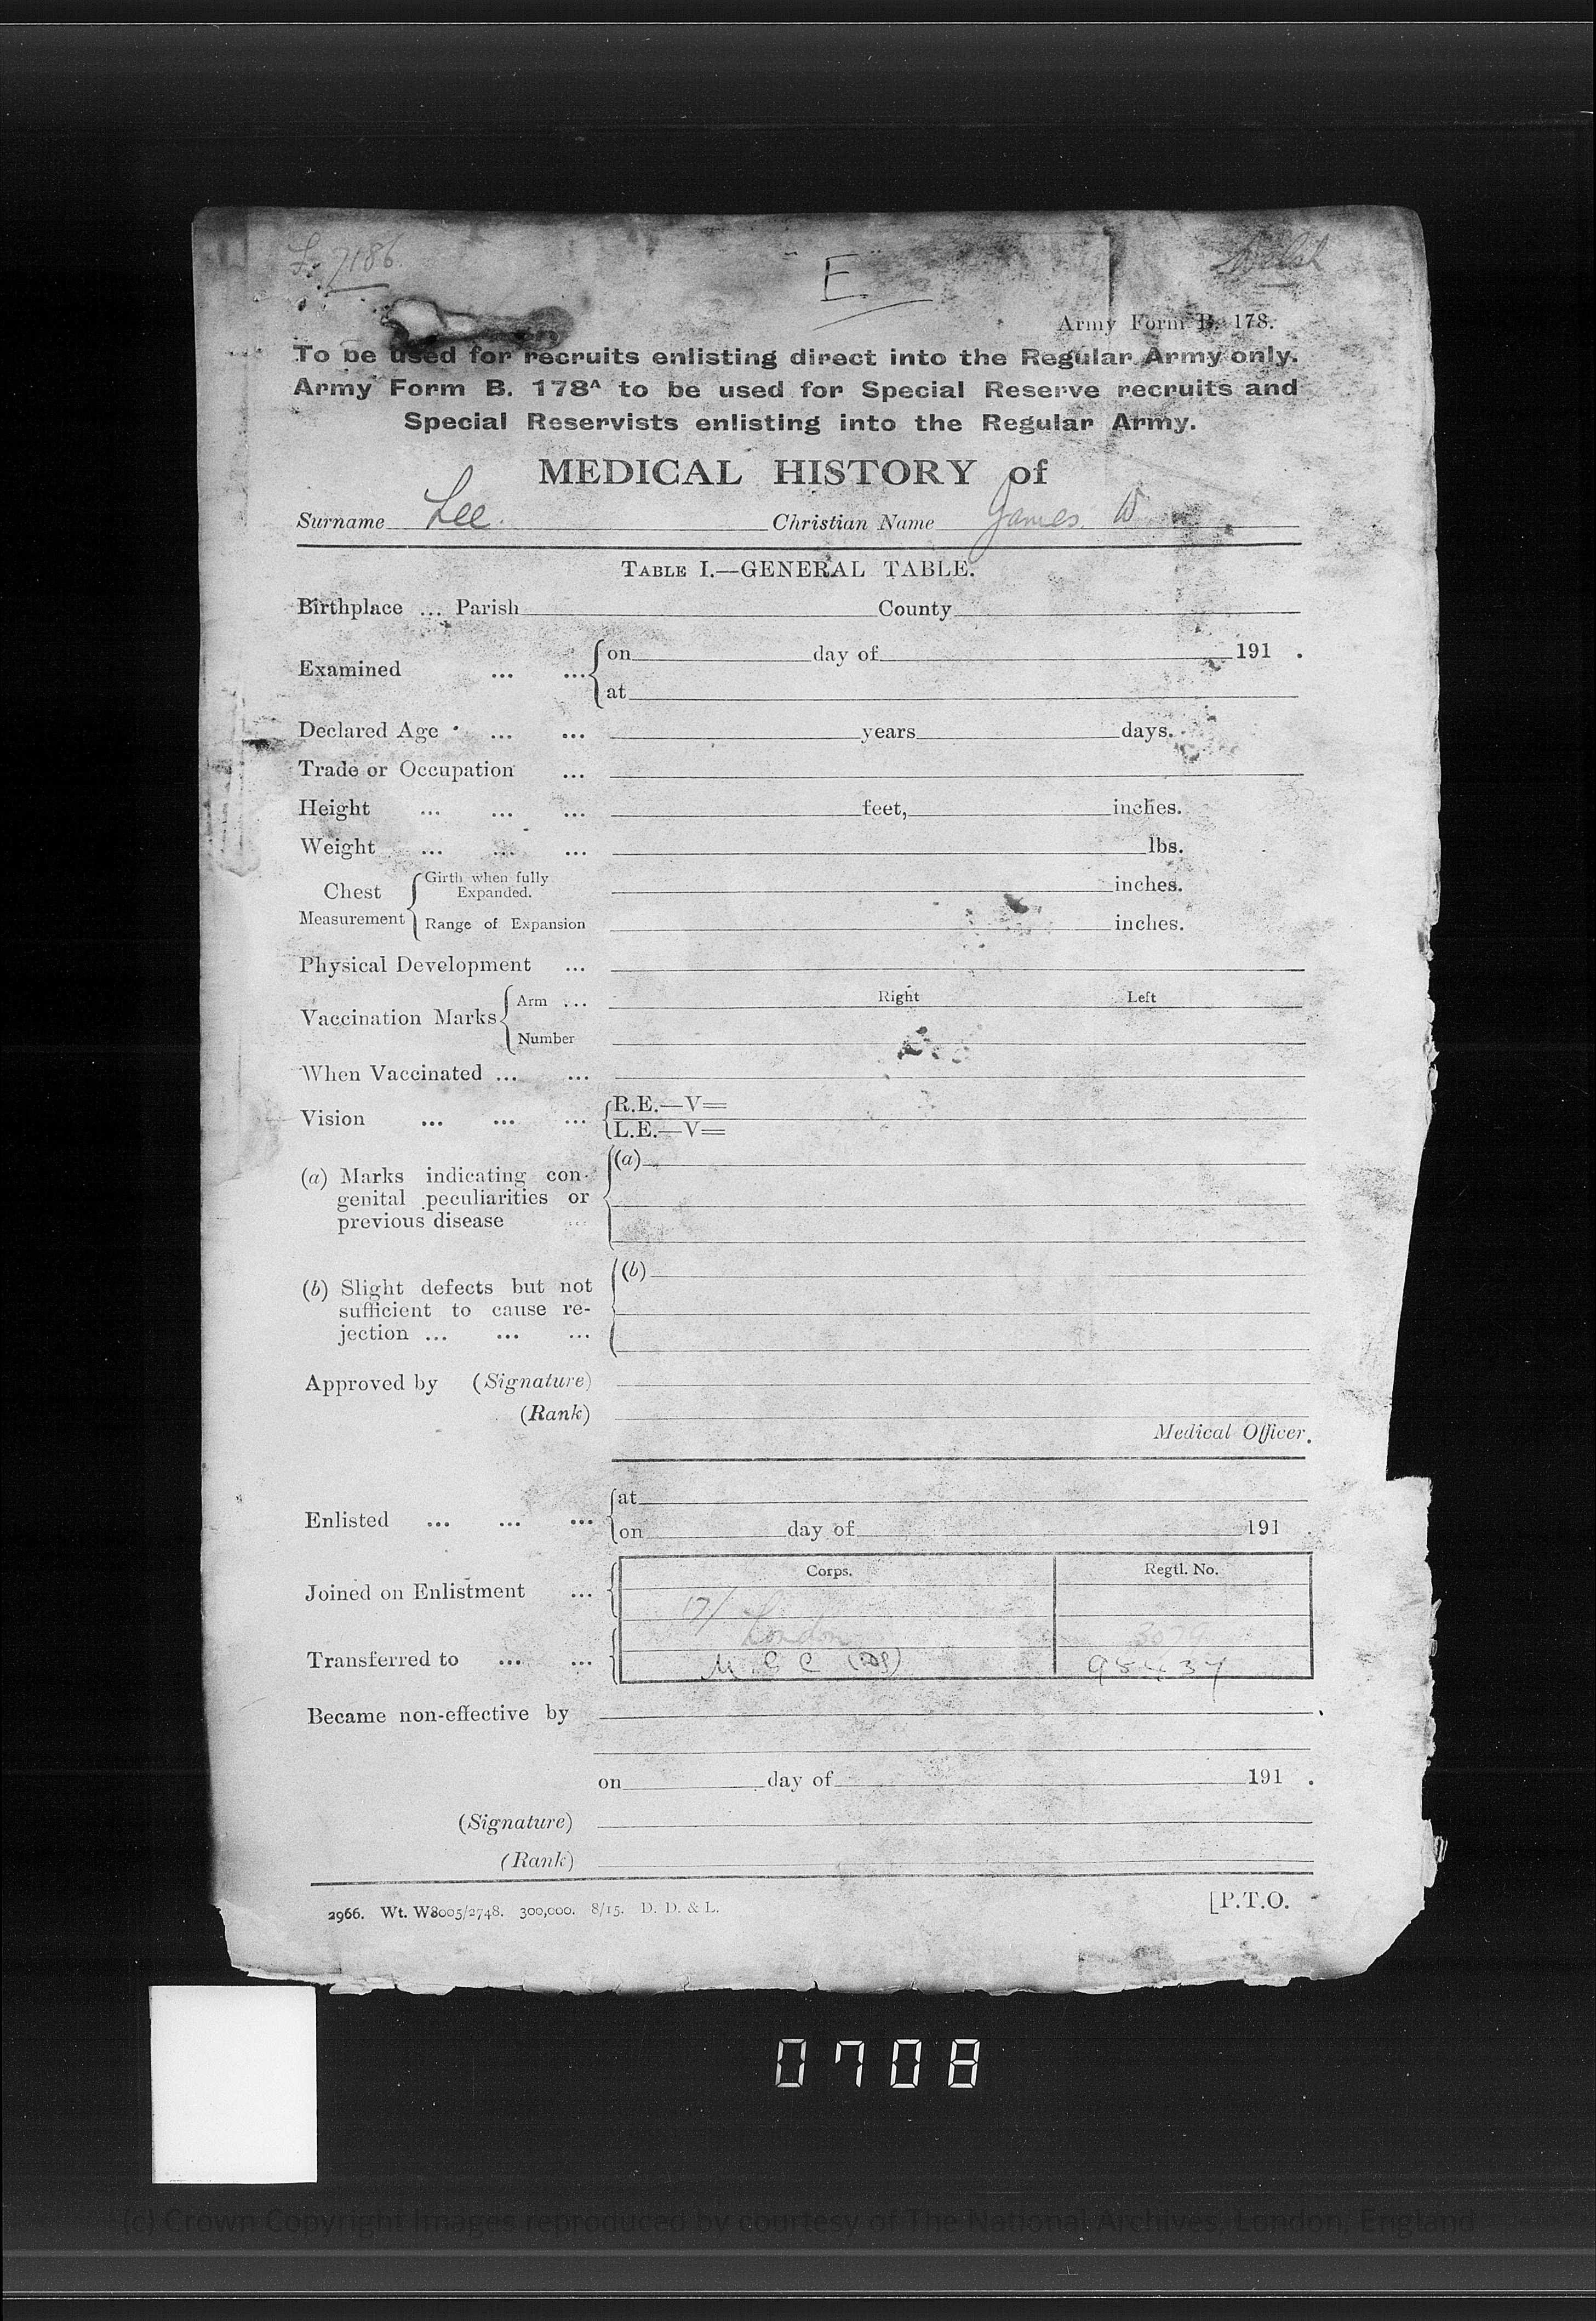 7186
E
Army Form B. 178.
To be used for recruits enlisting direct into the Regular Army only.
Army Form B. 178A to be used for Special Reserve recruits and
Special Reservists enlisting into the Regular Army.
MEDICAL HISTORY of
Surname Lee. Christian Name James W
TABLE I.—GENERAL TABLE.
Birthplace ... Parish County
Examined ... ... on day of 191 .
at
Declared Age ... ... years days.
Trade or Occupation ...
Height ... ... ... feet, inches.
Weight ... ... ... lbs.
Chest Measurement Girth when fully Expanded. inches.
Range of Expansion inches.
Physical Development ...
Vaccination Marks Arm ... Right Left
Number
When Vaccinated ... ...
Vision ... ... ... R.E.—V=
L.E.—V=
(a) Marks indicating con- (a)
genital peculiarities or
previous disease ...
(b) Slight defects but not (b)
sufficient to cause re-
jection ... ... ...
Approved by (Signature)
(Rank)
Medical Officer.
Enlisted ... ... ... at
on day of 191 .
Corps. Regtl. No.
Joined on Enlistment ... 17/
London 3079
Transferred to ... ... M. G. C
Became non-effective by .
on day of 191 .
(Signature)
(Rank)
2966. Wt. W8005/2748. 300,000. 8/15. D. D. & L. [P.T.O.
0708
(c) Crown Copyright Images reproduced by courtesy of The National Archives, London, England